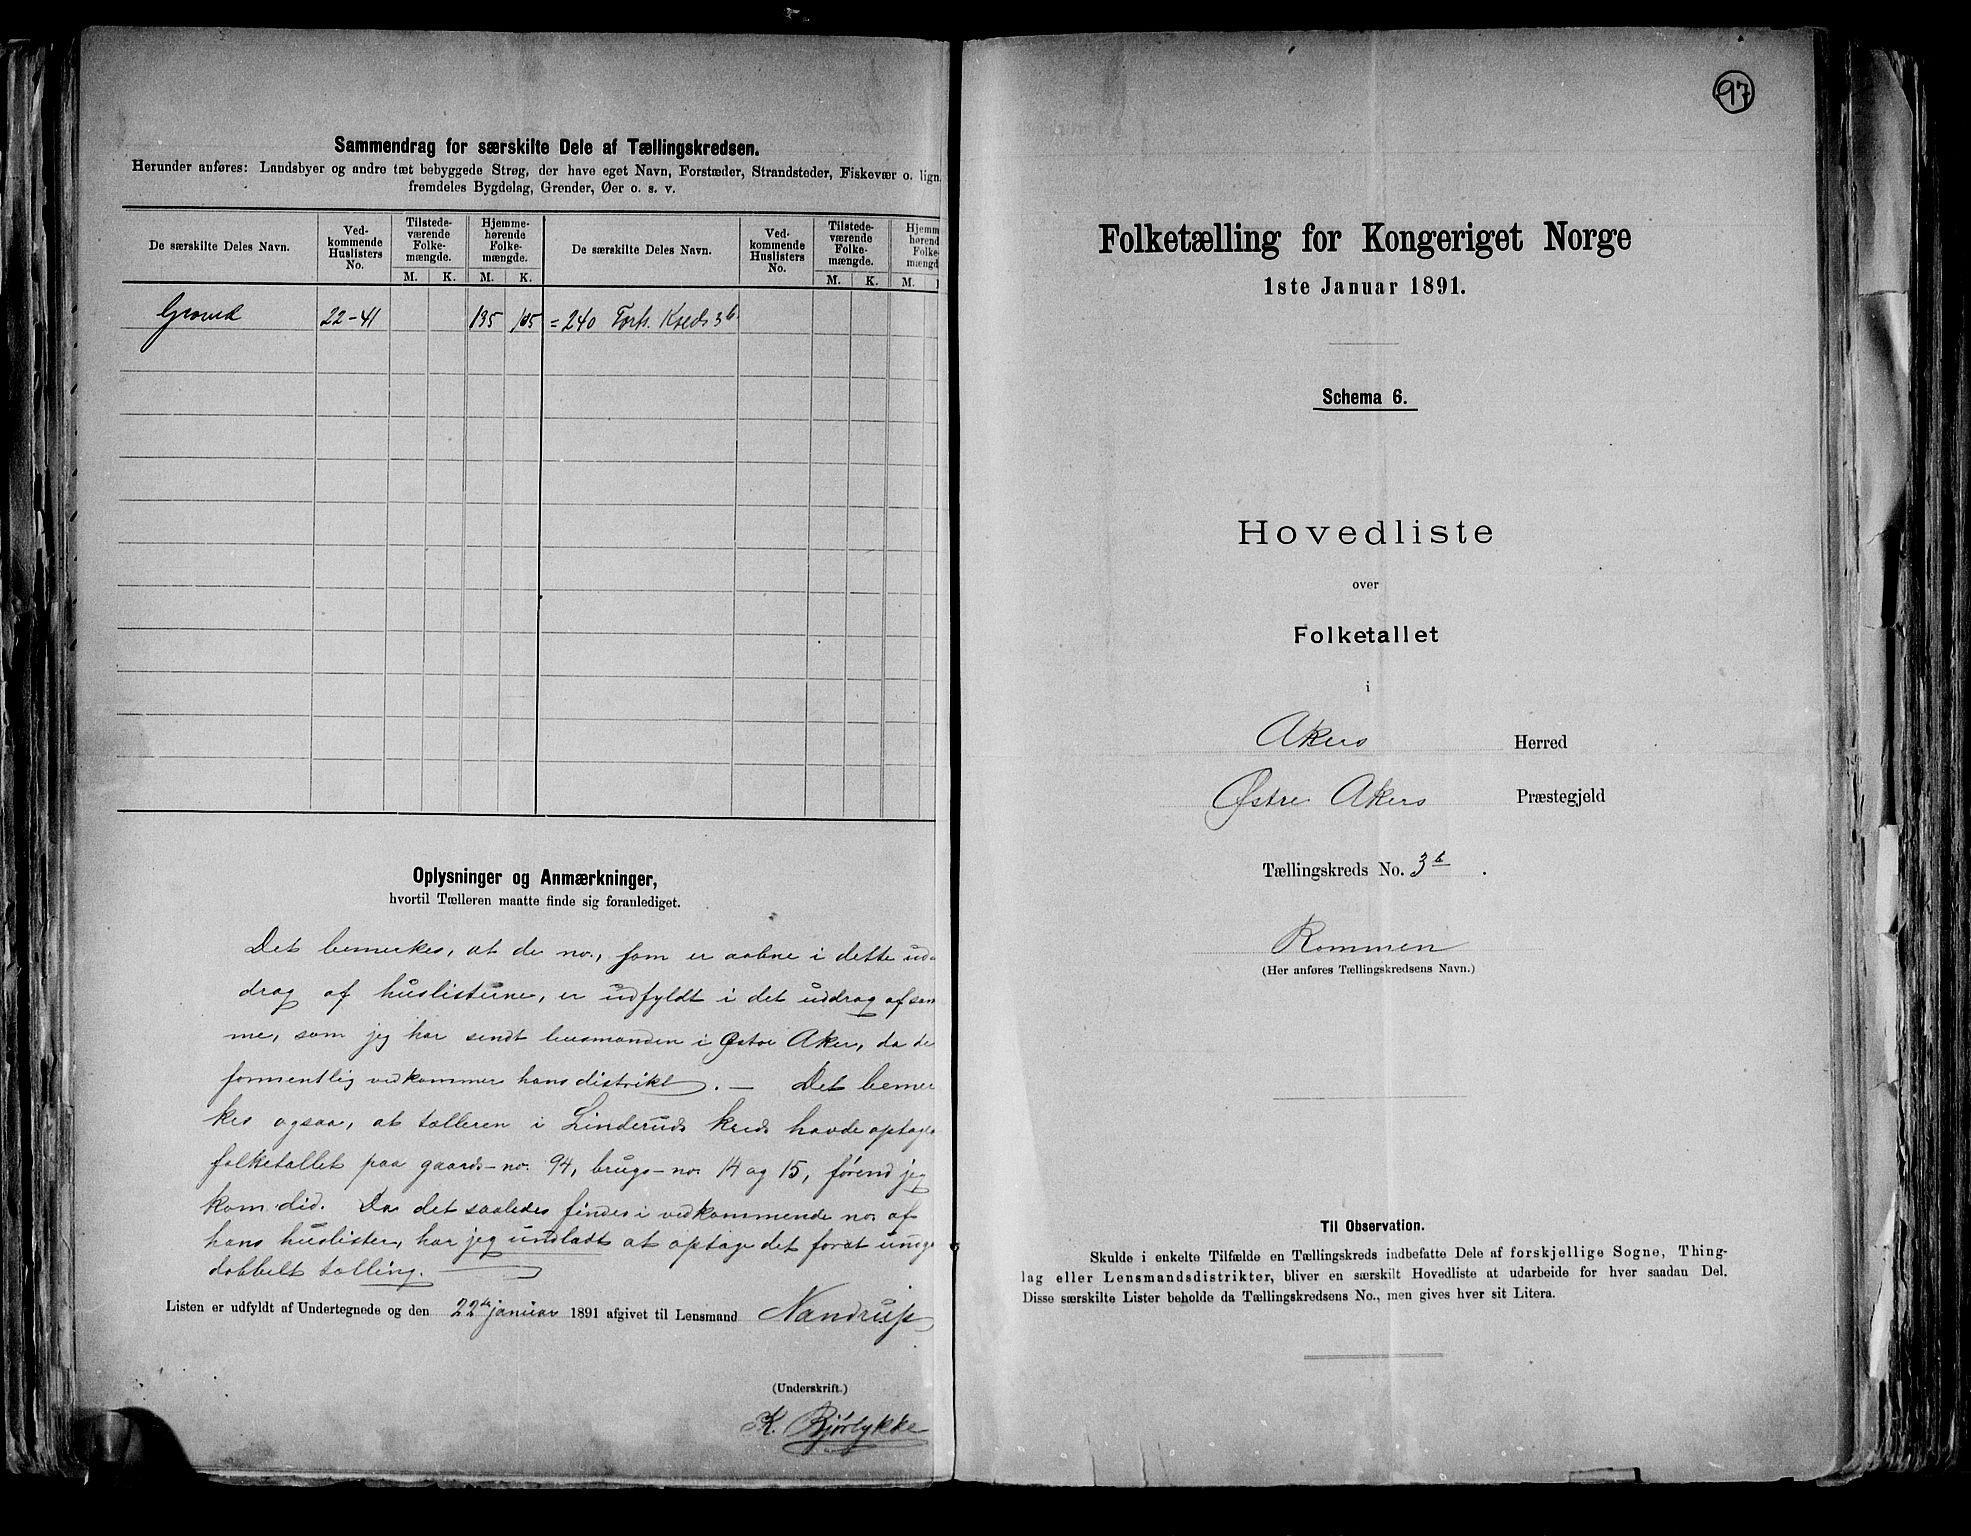 Sammendrag for særskilte Dele af Tællingskredsen.
Herunder anføres: Landsbyer og andre tæt bebyggede Strøg, der have eget Navn, Forstæder, Strandsteder, Fiskevær o. lign.
fremdeles Bygdelag, Grender, Øer o. s. v.
De særskilte Deles Navn.
Ved-
kommende
Huslisters
No.
Tilstede-
værende
Folke-
mængde.
Hjemme-
hørende
Folke-
mængde.
De særskilte Deles Navn.
Ved-
kommende
Huslisters
No.
Tilstede-
værende
Folke-
mængde.
Hjemm
hørend
Folke-
mængd
M. K. M. K. M. K. M.
Grorud 22-41 135 105 = 240 Forts. Kreds 3b
Oplysninger og Anmærkninger,
hvortil Tælleren maatte finde sig foranlediget.
Det bemerkes, at de no., som er aabne i dette ud-
drag af huslisterne, er udfyldt i det uddrag af sam
me, som jeg har sendt lensmanden i Østre Aker, da de
formentlig vedkommer hans distrikt. — Det bemer
kes ogsaa, at tælleren i Linderuds kreds havde optage
folketallet paa gaards-no. 94, brugs-no. 14 og 15, førend jeg
kom did. Da det saaledes findes i vedkommende no. af
hans huslister, har jeg undladt at optage det forat undga
dobbelt tælling.
Listen er udfyldt af Undertegnede og den 22de januar 1891 afgivet til Lensmand Nandrup
(Underskrift.)
K. Bjørlykke
97
Folketælling for Kongeriget Norge
1ste Januar 1891.
Schema 6.
Hovedliste
over
Folketallet
i
Akers Herred
Østre Akers Præstegjeld
Tællingskreds No. 3b.
Rommen
(Her anføres Tællingskredsens Navn.)
Til Observation.
Skulde i enkelte Tilfælde en Tællingskreds indbefatte Dele af forskjellige Sogne, Thing-
lag eller Lensmandsdistrikter, bliver en særskilt Hovedliste at udarbeide for hver saadan Del.
Disse særskilte Lister beholde da Tællingskredsens No., men gives hver sit Litera.